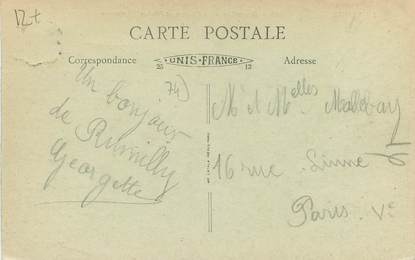 12+
CARTE POSTALE
Correspondance
UNIS-FRANCE
25 12
Adresse
74)
Un bonjour
de Rumilly
Georgette
M et Melles
16 rue Linné
Paris. Ve